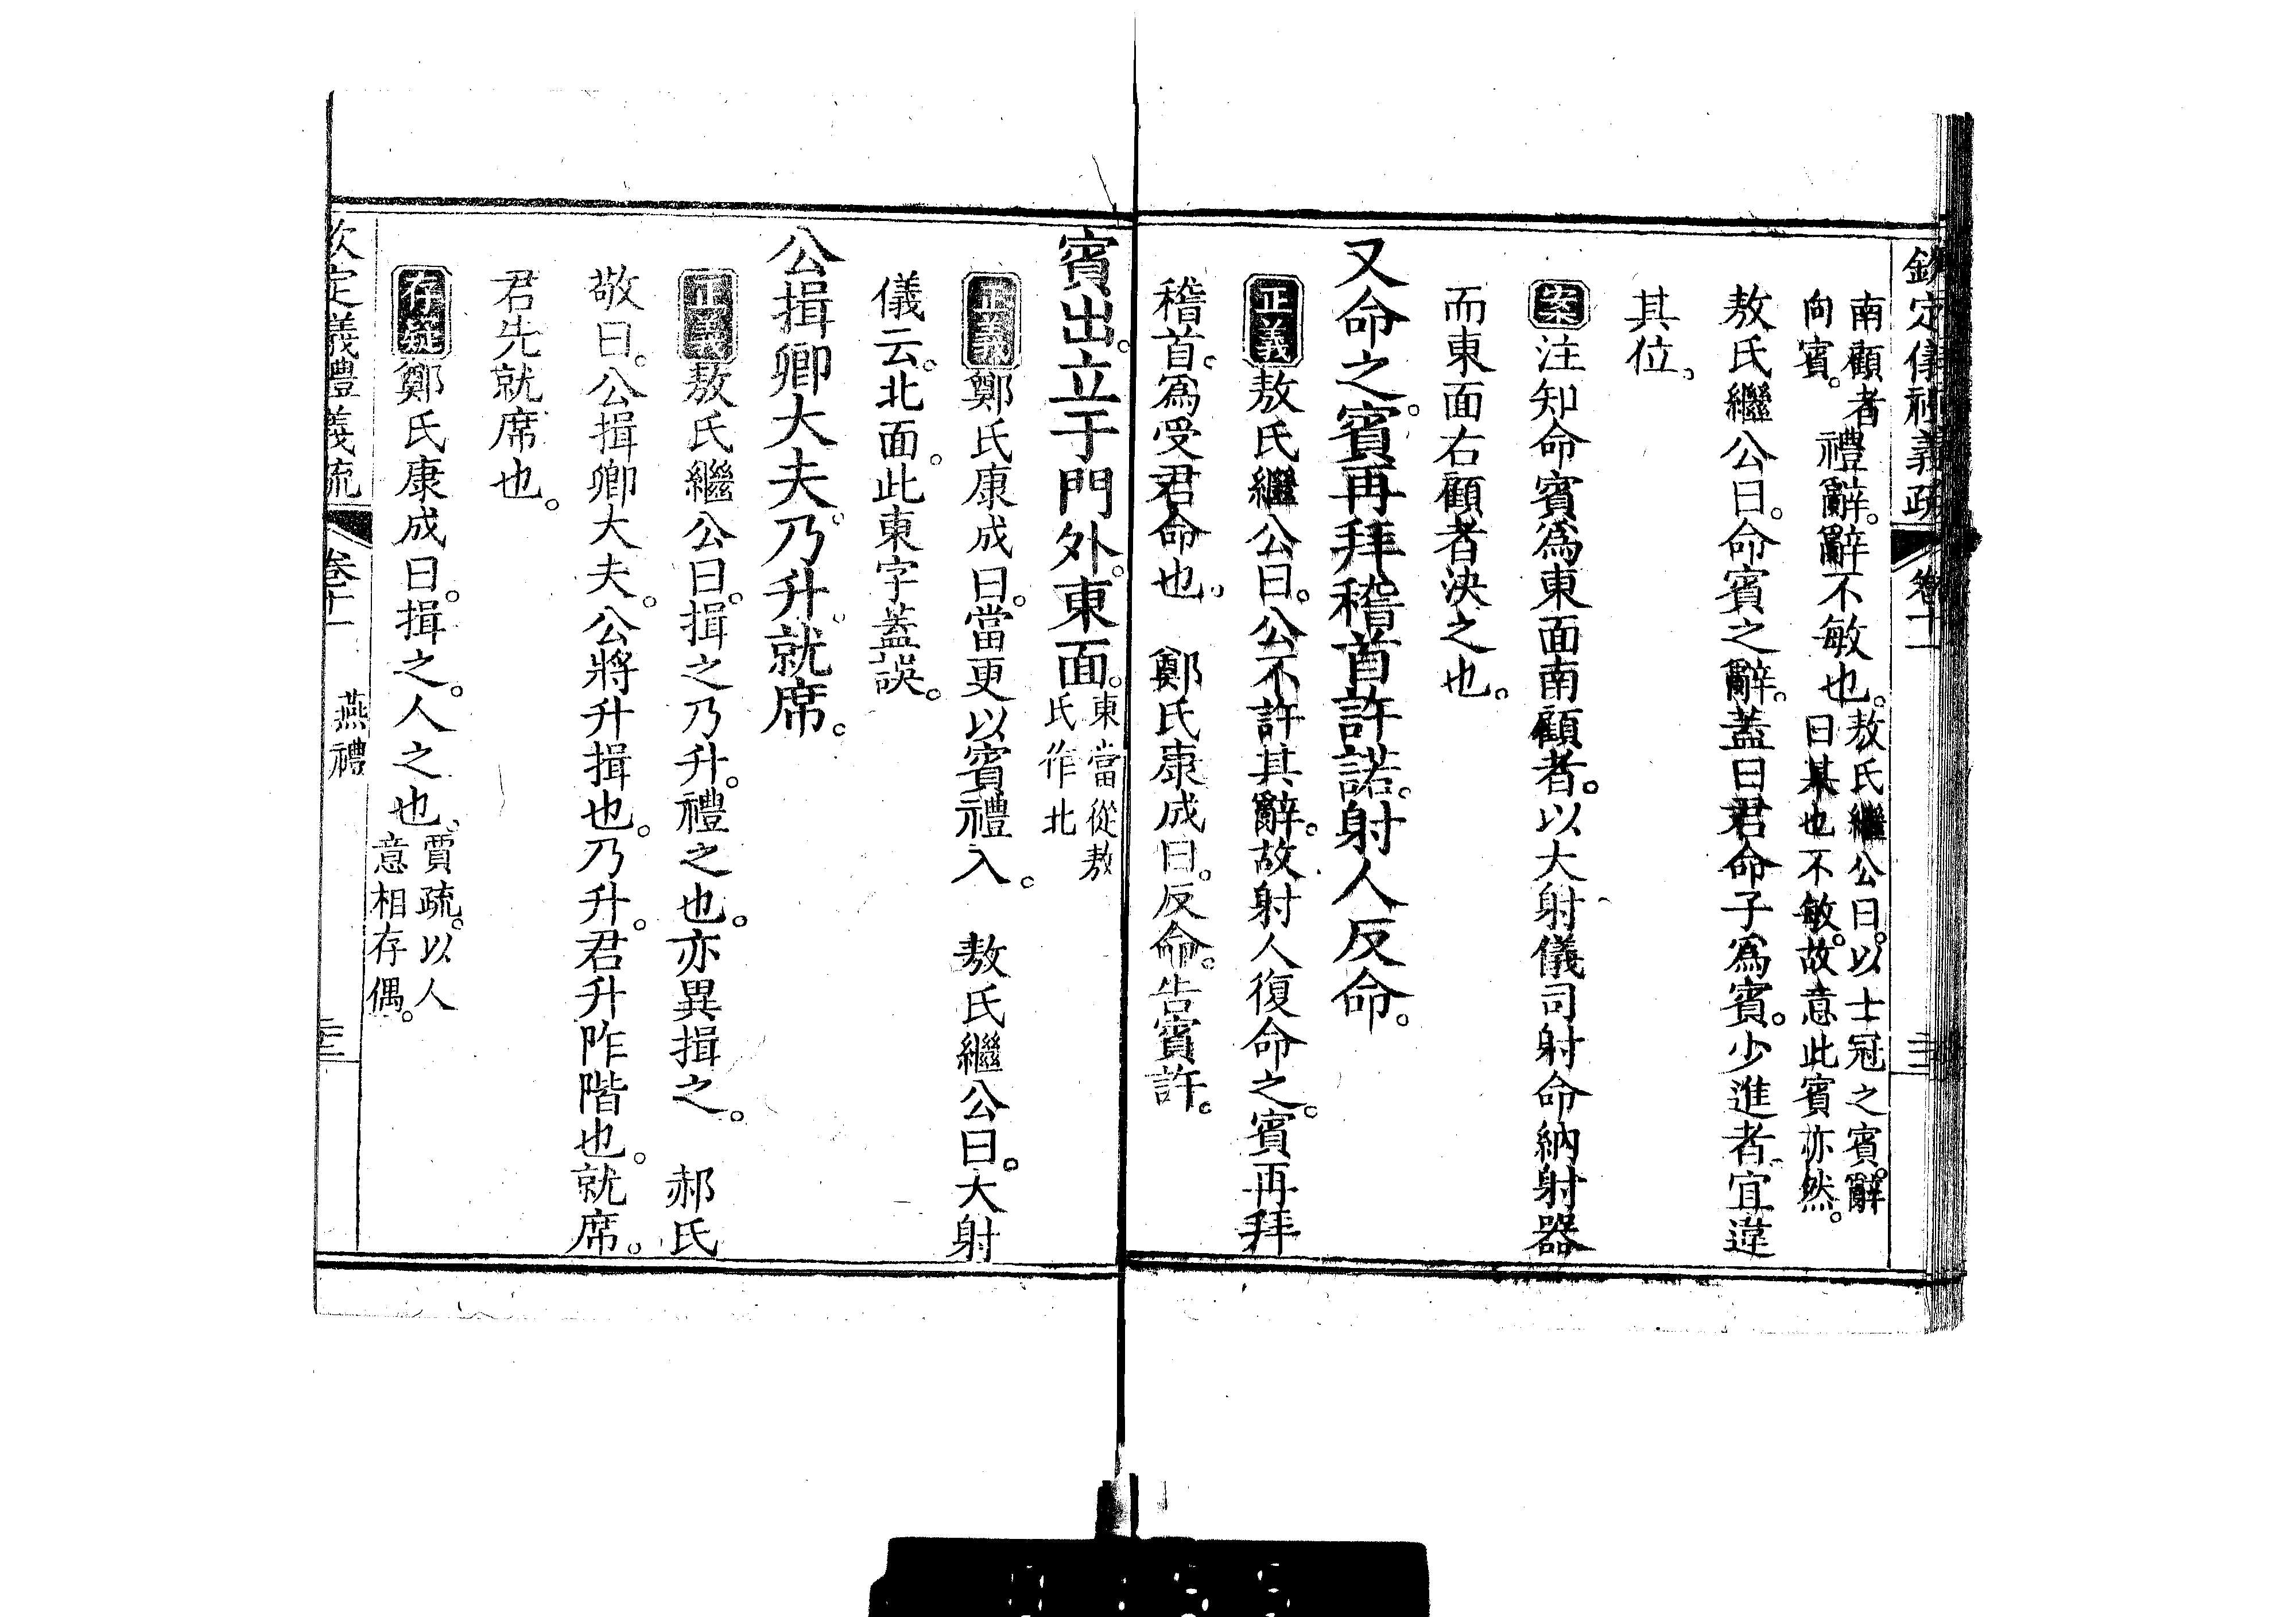 欽定儀禮義疏 卷十一 三
南顧者
向賓。
禮辭。辭不敏也。
敖氏繼公曰。以士冠之賓。辭
曰某也不敏。故意此賓亦然。
敖氏繼公曰。命賓之辭。蓋曰君命子為賓。少進者。宜違
其位。
案注知命賓為東面南顧者。以大射儀司射命納射器
而東面右顧者決之也。
又命之。賓再拜稽首許諾。射人反命。
正義敖氏繼公曰。公不許其辭。故射人復命之。賓再拜
稽首。為受君命也。 鄭氏康成曰。反命。告賓許。
賓出。立于門外。東面。
東當從敖
氏作北
正義鄭氏康成曰。當更以賓禮入。 敖氏繼公曰。大射
儀云。北面。此東字蓋誤。
公揖卿大夫。乃升。就席。
正義敖氏繼公曰。揖之乃升。禮之也。亦異揖之。 郝氏
敬曰。公揖卿大夫。公將升揖也。乃升。君升阼階也。就席。
君先就席也。
存疑鄭氏康成曰。揖之。人之也。
賈疏。以人
意相存偶。
欽定義禮義疏 卷十一 燕禮